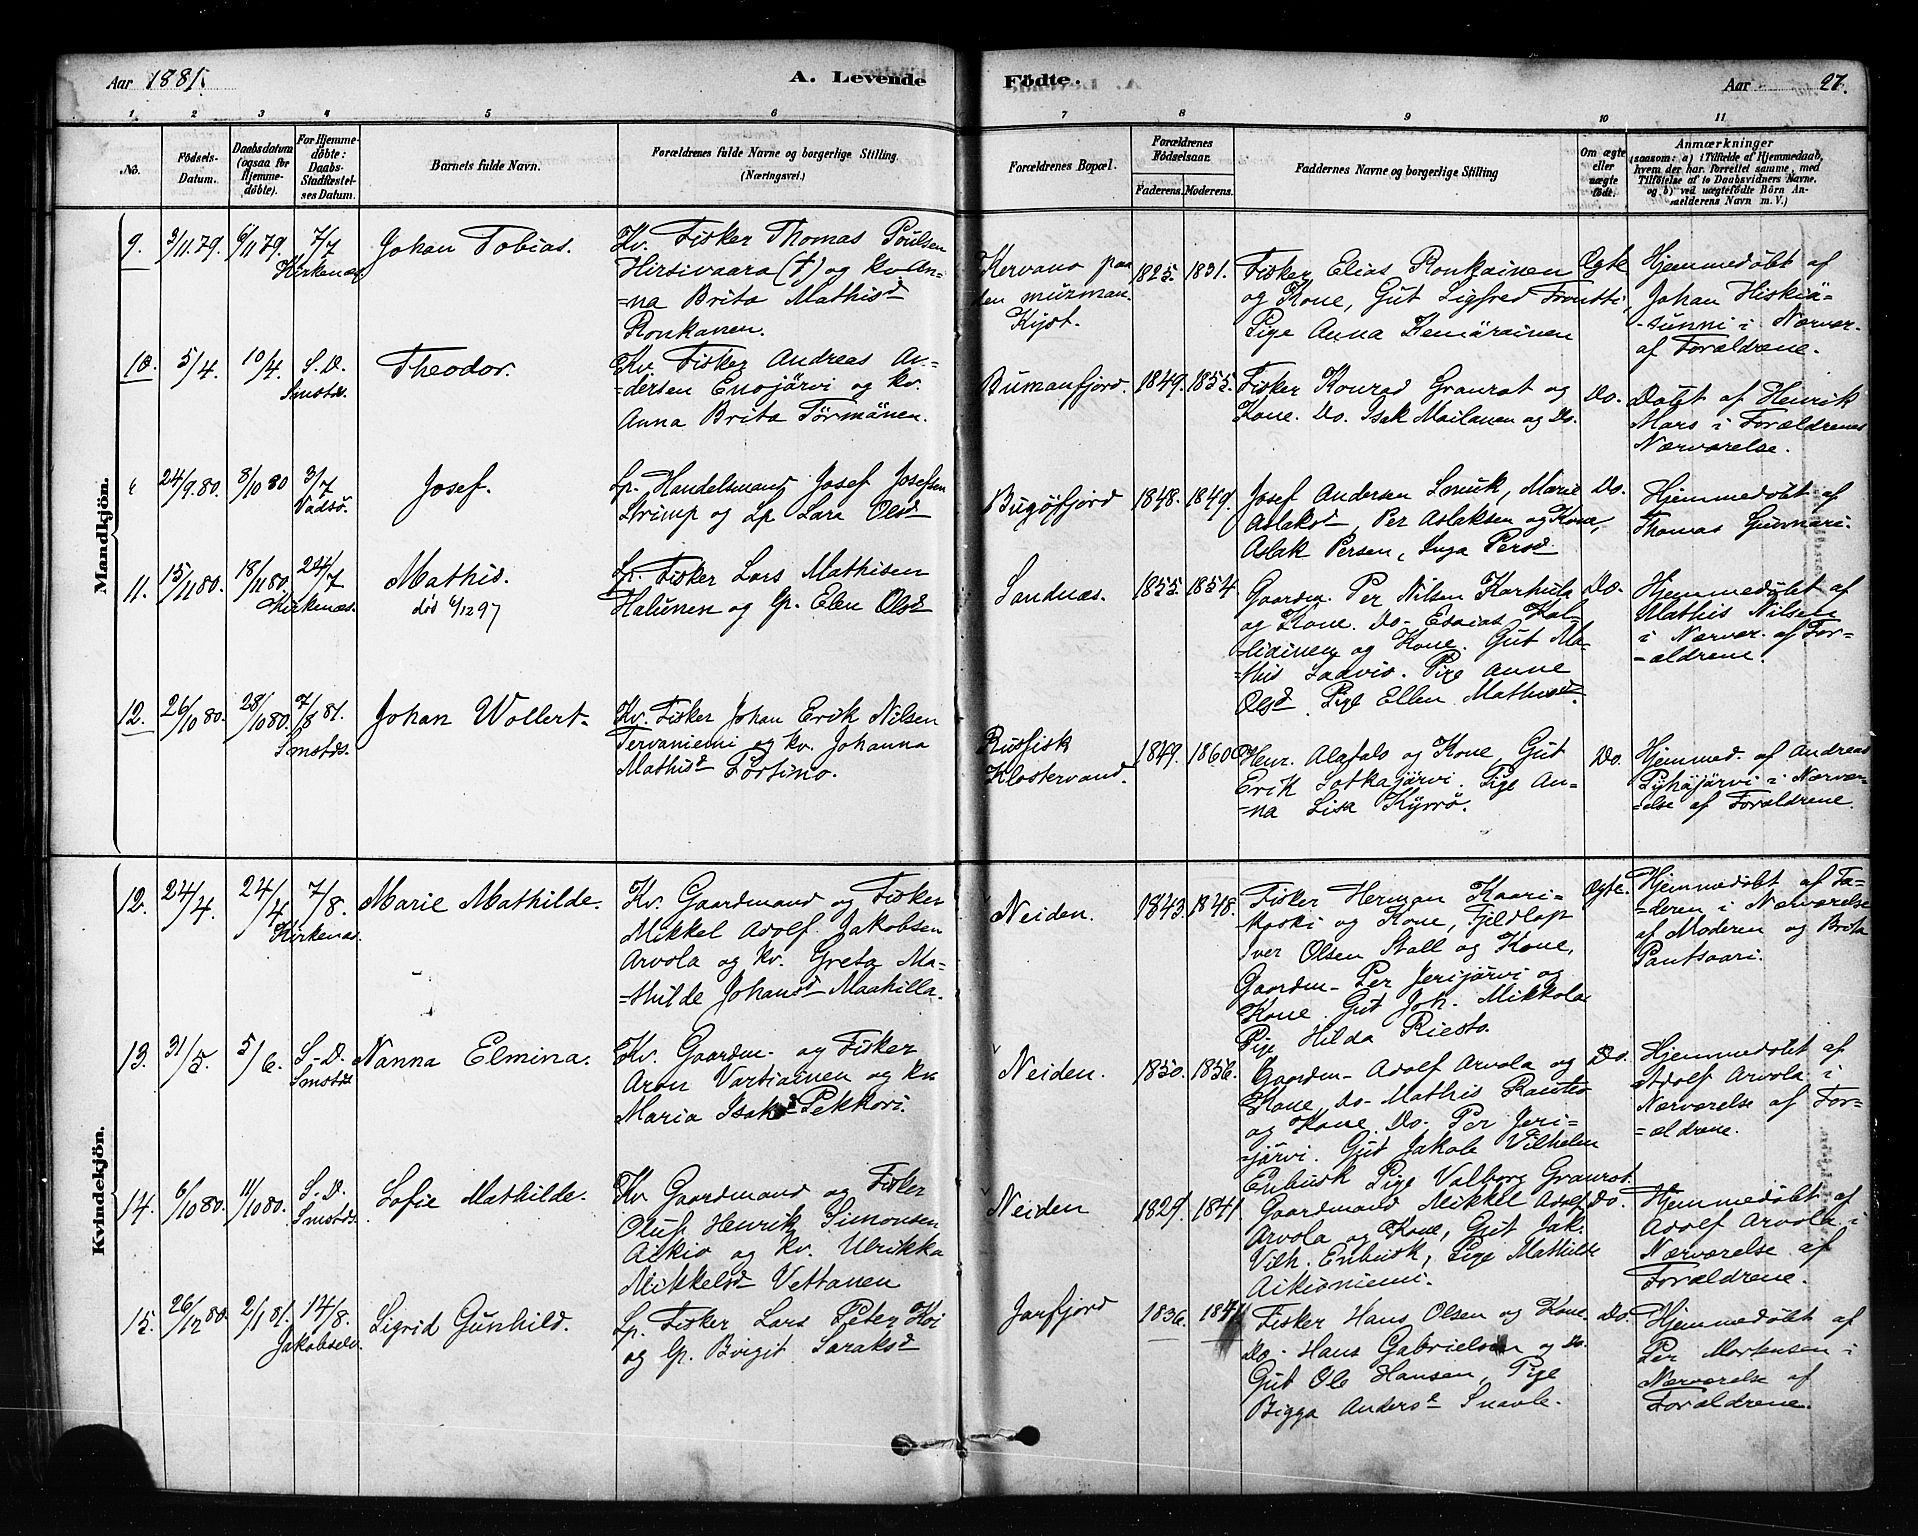 Aar 1881.
A. Levende
Fødte.
Aar 27.
1 2 3 4 5 6 7 8 9 10 11
No.
Fødsels-
Datum.
Daabsdatum
(ogsaa for
Hjemme-
døbte).
For Hjemme-
døbte:
Daabs-
Stadfæstel-
ses Datum.
Barnets fulde Navn.
Forældrenes fulde Navne og borgerlige Stilling.
(Næringsvei.)
Forældrenes Bopæl.
Forældrenes
Fødselsaar.
Faderens. Moderens.
Faddernes Navne og borgerlige Stilling
Om ægte
eller
uægte
født.
Anmærkninger
(saasom: a) i Tilfælde af Hjemmedaab,
hvem der har forrettet samme, med
Tilføielse af to Daabsvidners Navne,
og b) ved uægtefødte Børn An-
mælderens Navn m. V.)
Mandkjøn.
9. 3/11.79. 6/11 79. 7/7 Kirkenæs. Johan Tobias.
Kv. Fisker Thomas Poulsen
Hirsivaara (†) og kv. An-
=na Brita Mathisd
Ronkanen.
Kervano paa
den murman.
Kyst.
1825. 1831.
Fisker Elias Ronkainen
og Kone, Gut Sigfred
Pige Anna Kemäräinen
Ægte.
Hjemmedøbt af
Johan Hiskiä-
-sunni i Nærvær.
af Forældrene.
10. 5/4. 10/4. S. D. Smstds. Theodor.
Kv. Fisker Andreas An-
=dersen Enojärvi og kv.
Anna Brita Törmänen.
Bumanfjord. 1849. 1855.
Fisker Konrad Granrot og
Kone. Do. Isak Mailanen og Do.
Do.
Døbt af Henrik
Mars i Forældrenes
Nærværelse.
24/9.80. 8/10 80 3/7 Vadsø. Josef.
Lp. Handelsmand Josef Josefsen
Strimp og Lp Lara Olsd
Bugøfjord 1848. 1849.
Josef Andersen Smuk, Marie
Aslaksd, Per Aslaksen og Kone,
Aslak Persen, Inga Persd
Do.
Hjemmedøbt af
Thomas Gunnari.
11. 15/11 80. 18/11 80. 24/7 Kirkenæs. Mathis.
død 6/12 97
Lp. Fisker Lars Mathisen
Halunen og Lp. Elen Olsd
Sandnæs. 1855. 1854.
Gaardm. Per Nilsen Karhula
og Kone. Do- Esaias Kal-
-liainen og Kone. Gut Ma-
=this Ladvio. Pige Anne
Olsd. Pige Ellen Mathisd.
Do.
Hjemmedøbt af
Mathis Nilsen
i Nærvær. af For-
=ældrene.
12. 26/10 80. 28/10 80. 7/8 81. Smstds. Johan Wollert.
Kv. Fisker Johan Erik Nilsen
Tervaniemi og kv. Johanna
Mathisd Portimo.
Russisk
Klostervand.
1849. 1860
Henr. Alatalo og Kone, Gut
Erik Satkajärvi. Pige An-
=na Lisa Kyrrö.
Do.
Hjemmed. af Andreas
Pyhäjärvi i Nærvæ-
=else af Forældrene.
Kvindekjøn.
12. 24/4. 24/4 7/8. Kirkenæs. Marie Mathilde.
Kv. Gaardmand og Fisker
Mikkel Adolf Jakobsen
Arvola og kv. Greta Ma-
=thilde Johansd Maahilla.
Neiden. 1843. 1848.
Fisker Herman Kaari-
koski og Kone, Fjeldlap
Iver Olsen Stall og Kone,
Gaardm- Per Jerijärvi og
Kone. Gut Joh. Mikkola
Pige Hilda Riesto.
Ægte.
Hjemmedøbt af Fa-
=deren i Nærværelse
af Moderen og Brita
Pantsaari.
13. 31/5. 5/6. S-D. Smstds Nanna Elmina.
Kv. Gaardm- og Fisker
Aron Vartiainen og kv.
Maria Isaksd Pekkari.
Neiden. 1850. 1856.
Gaardm- Adolf Arvola og
Kone, Do- Mathis Rautio
og Kone. Do. Per Jeri-
=järvi. Gut Jakob Vilhelm
Enbusk Pige Valborg Granrot.
Do.
Hjemmedøbt af
Adolf Arvola i
Nærværelse af For-
=ældrene.
14. 6/10 80. 11/10 80. S-D. Smstds. Sofie Mathilde.
Kv Gaardmand og Fisker
Oluf Henrik Simonsen
Aikio og kv. Ulrikka
Mikkelsd Vettanen
Neiden 1829. 1841.
Gaardmand Mikkel Adolf
Arvola og Kone, Gut Jak.
Vilh. Enbusk, Pige Mathilde
Aikioniemi.
Do.
Hjemmedøbt af
Adolf Arvola i
Nærværelse af
Forældrene.
15. 26/12 80. 2/1 81. 14/8. Jakobselv. Sigrid Gunhild.
Lp. Fisker Lars Peter Koi
og Lp. Brigit Saraksd
Jarfjord 1836. 1841
Fisker Hans Olsen og Kone.
Do- Hans Gabrielsen og Do.
Gut Ole Hansen, Pige
Bigga Andersd Snavle.
Do.
Hjemmedøbt af
Per Mortensen i
Nærværelse af
Forældrene.